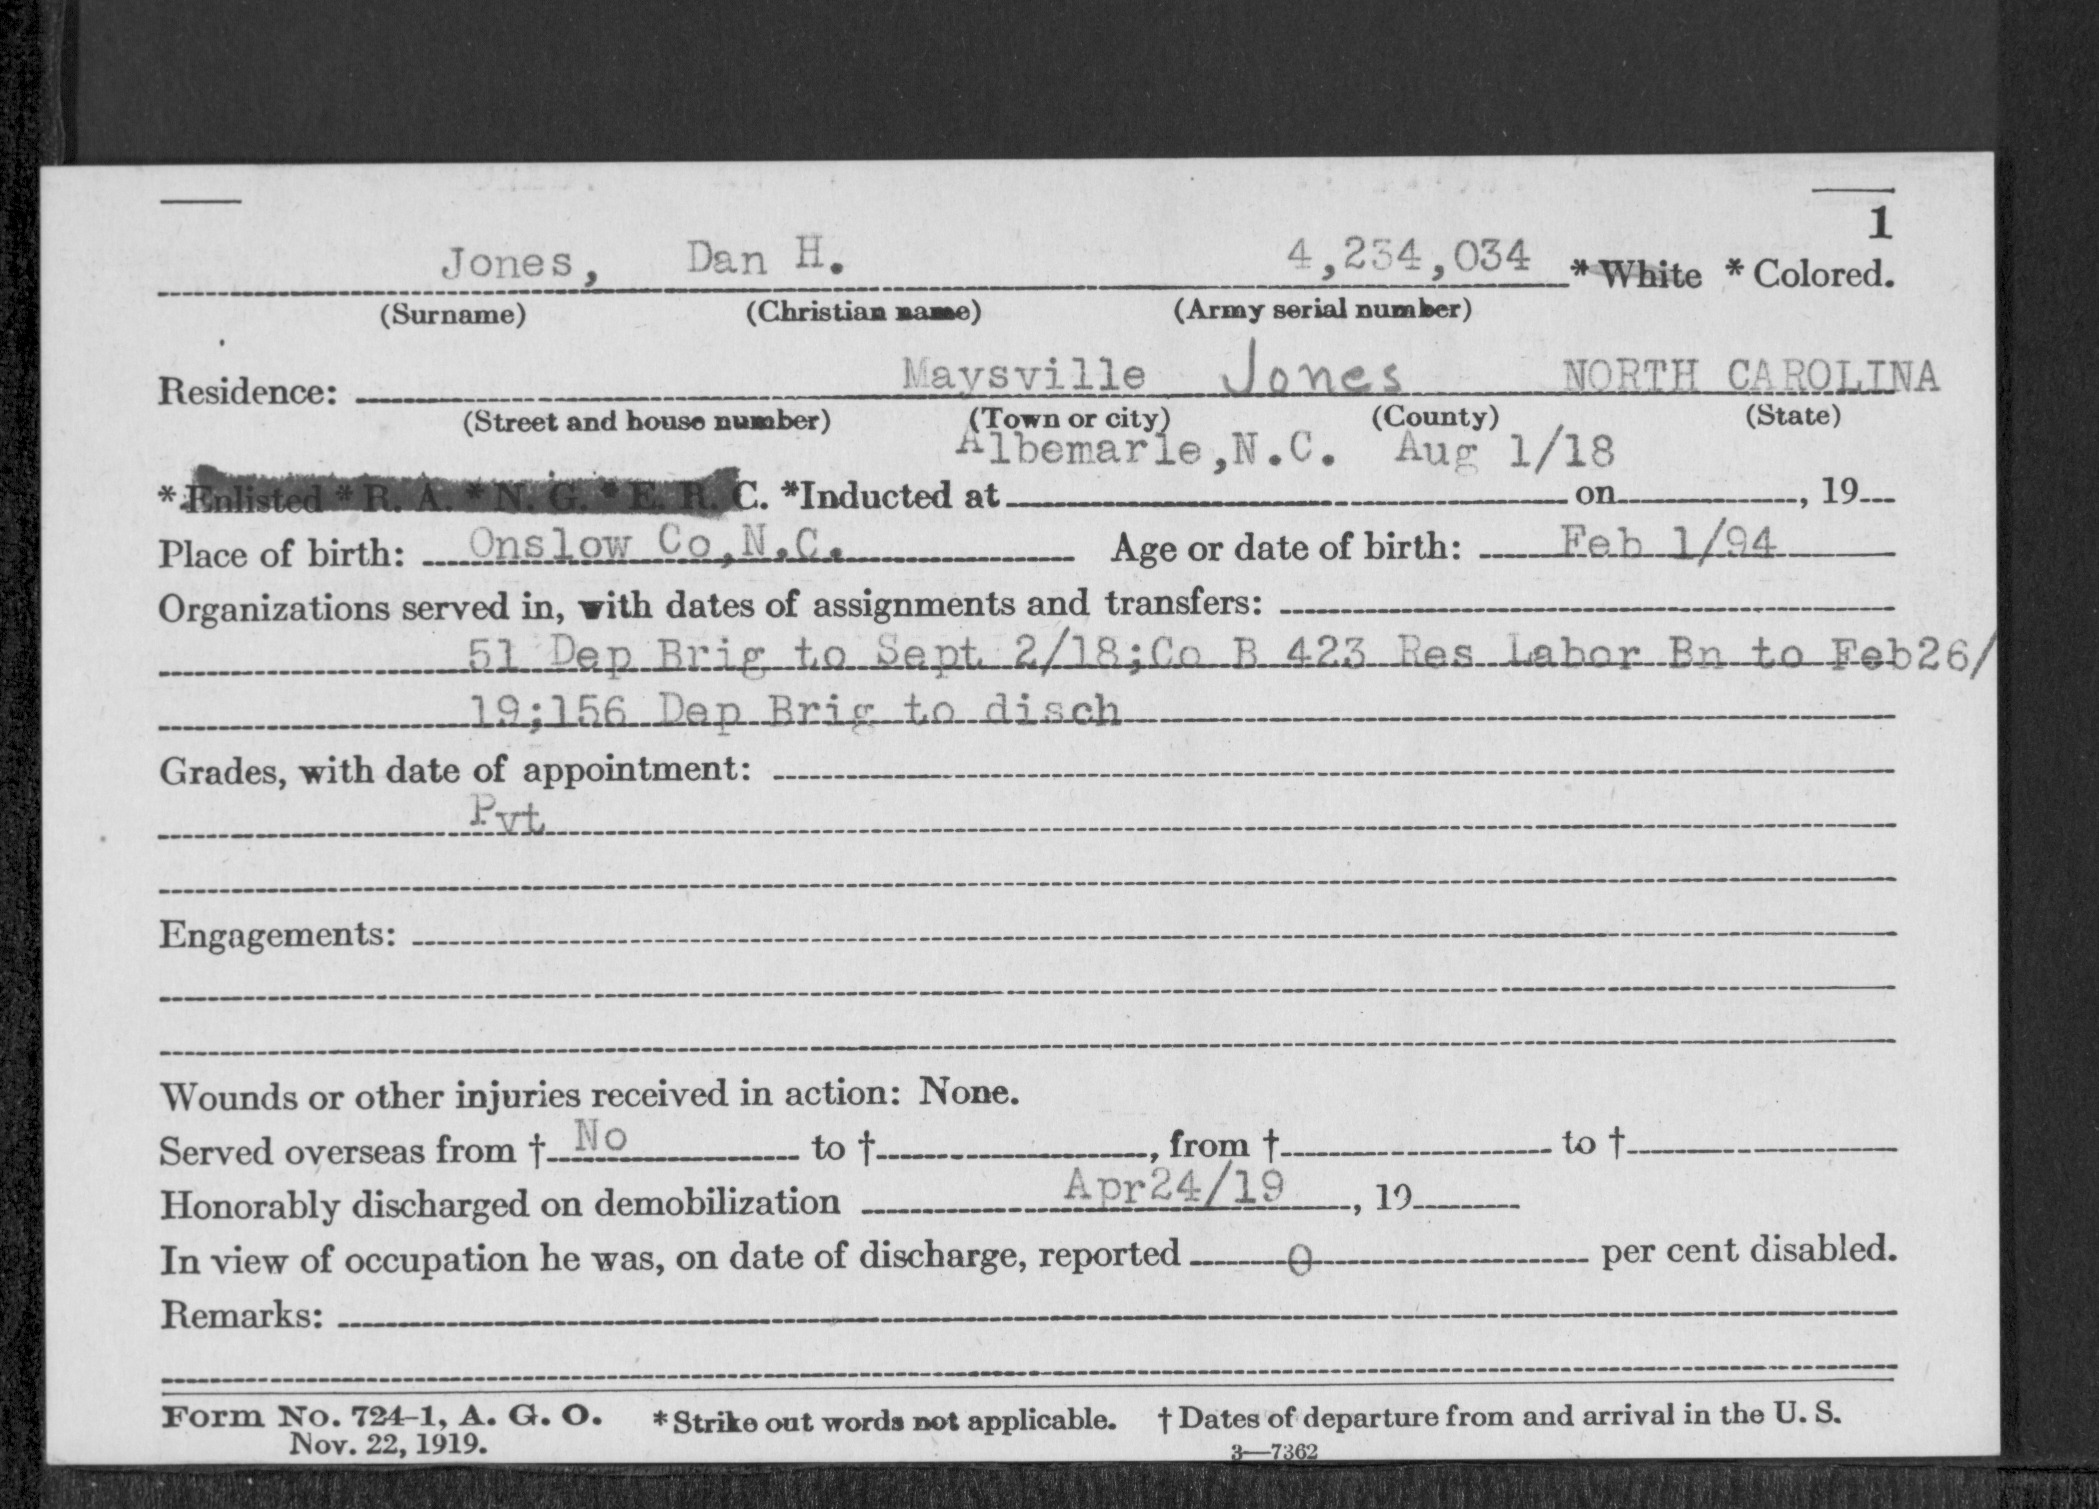 1
Jones, Dan H. 4,234,034 *White *Colored.
(Surname) (Christian name) (Army serial number)
Residence: Maysville Jones NORTH CAROLINA
(Street and house number) (Town or city) (County) (State)
Albemarle,N.C. Aug 1/18
*Enlisted *R. A. *N. G. *E. R. C. *Inducted at on , 19
Place of birth: Onslow Co,N.C. Age or date of birth: Feb 1/94
Organizations served in, with dates of assignments and transfers:
51 Dep Brig to Sept 2/18;Co B 423 Res Labor Bn to Feb26/
19;156 Dep Brig to disch
Grades, with date of appointment:
Pvt
Engagements:
Wounds or other injuries received in action: None.
Served overseas from † No to † , from † to †
Honorably discharged on demobilization Apr24/19 , 19
In view of occupation he was, on date of discharge, reported 0 per cent disabled.
Remarks:
Form No. 724-1, A. G. O. *Strike out words not applicable. †Dates of departure from and arrival in the U. S.
Nov. 22, 1919. 3—7362